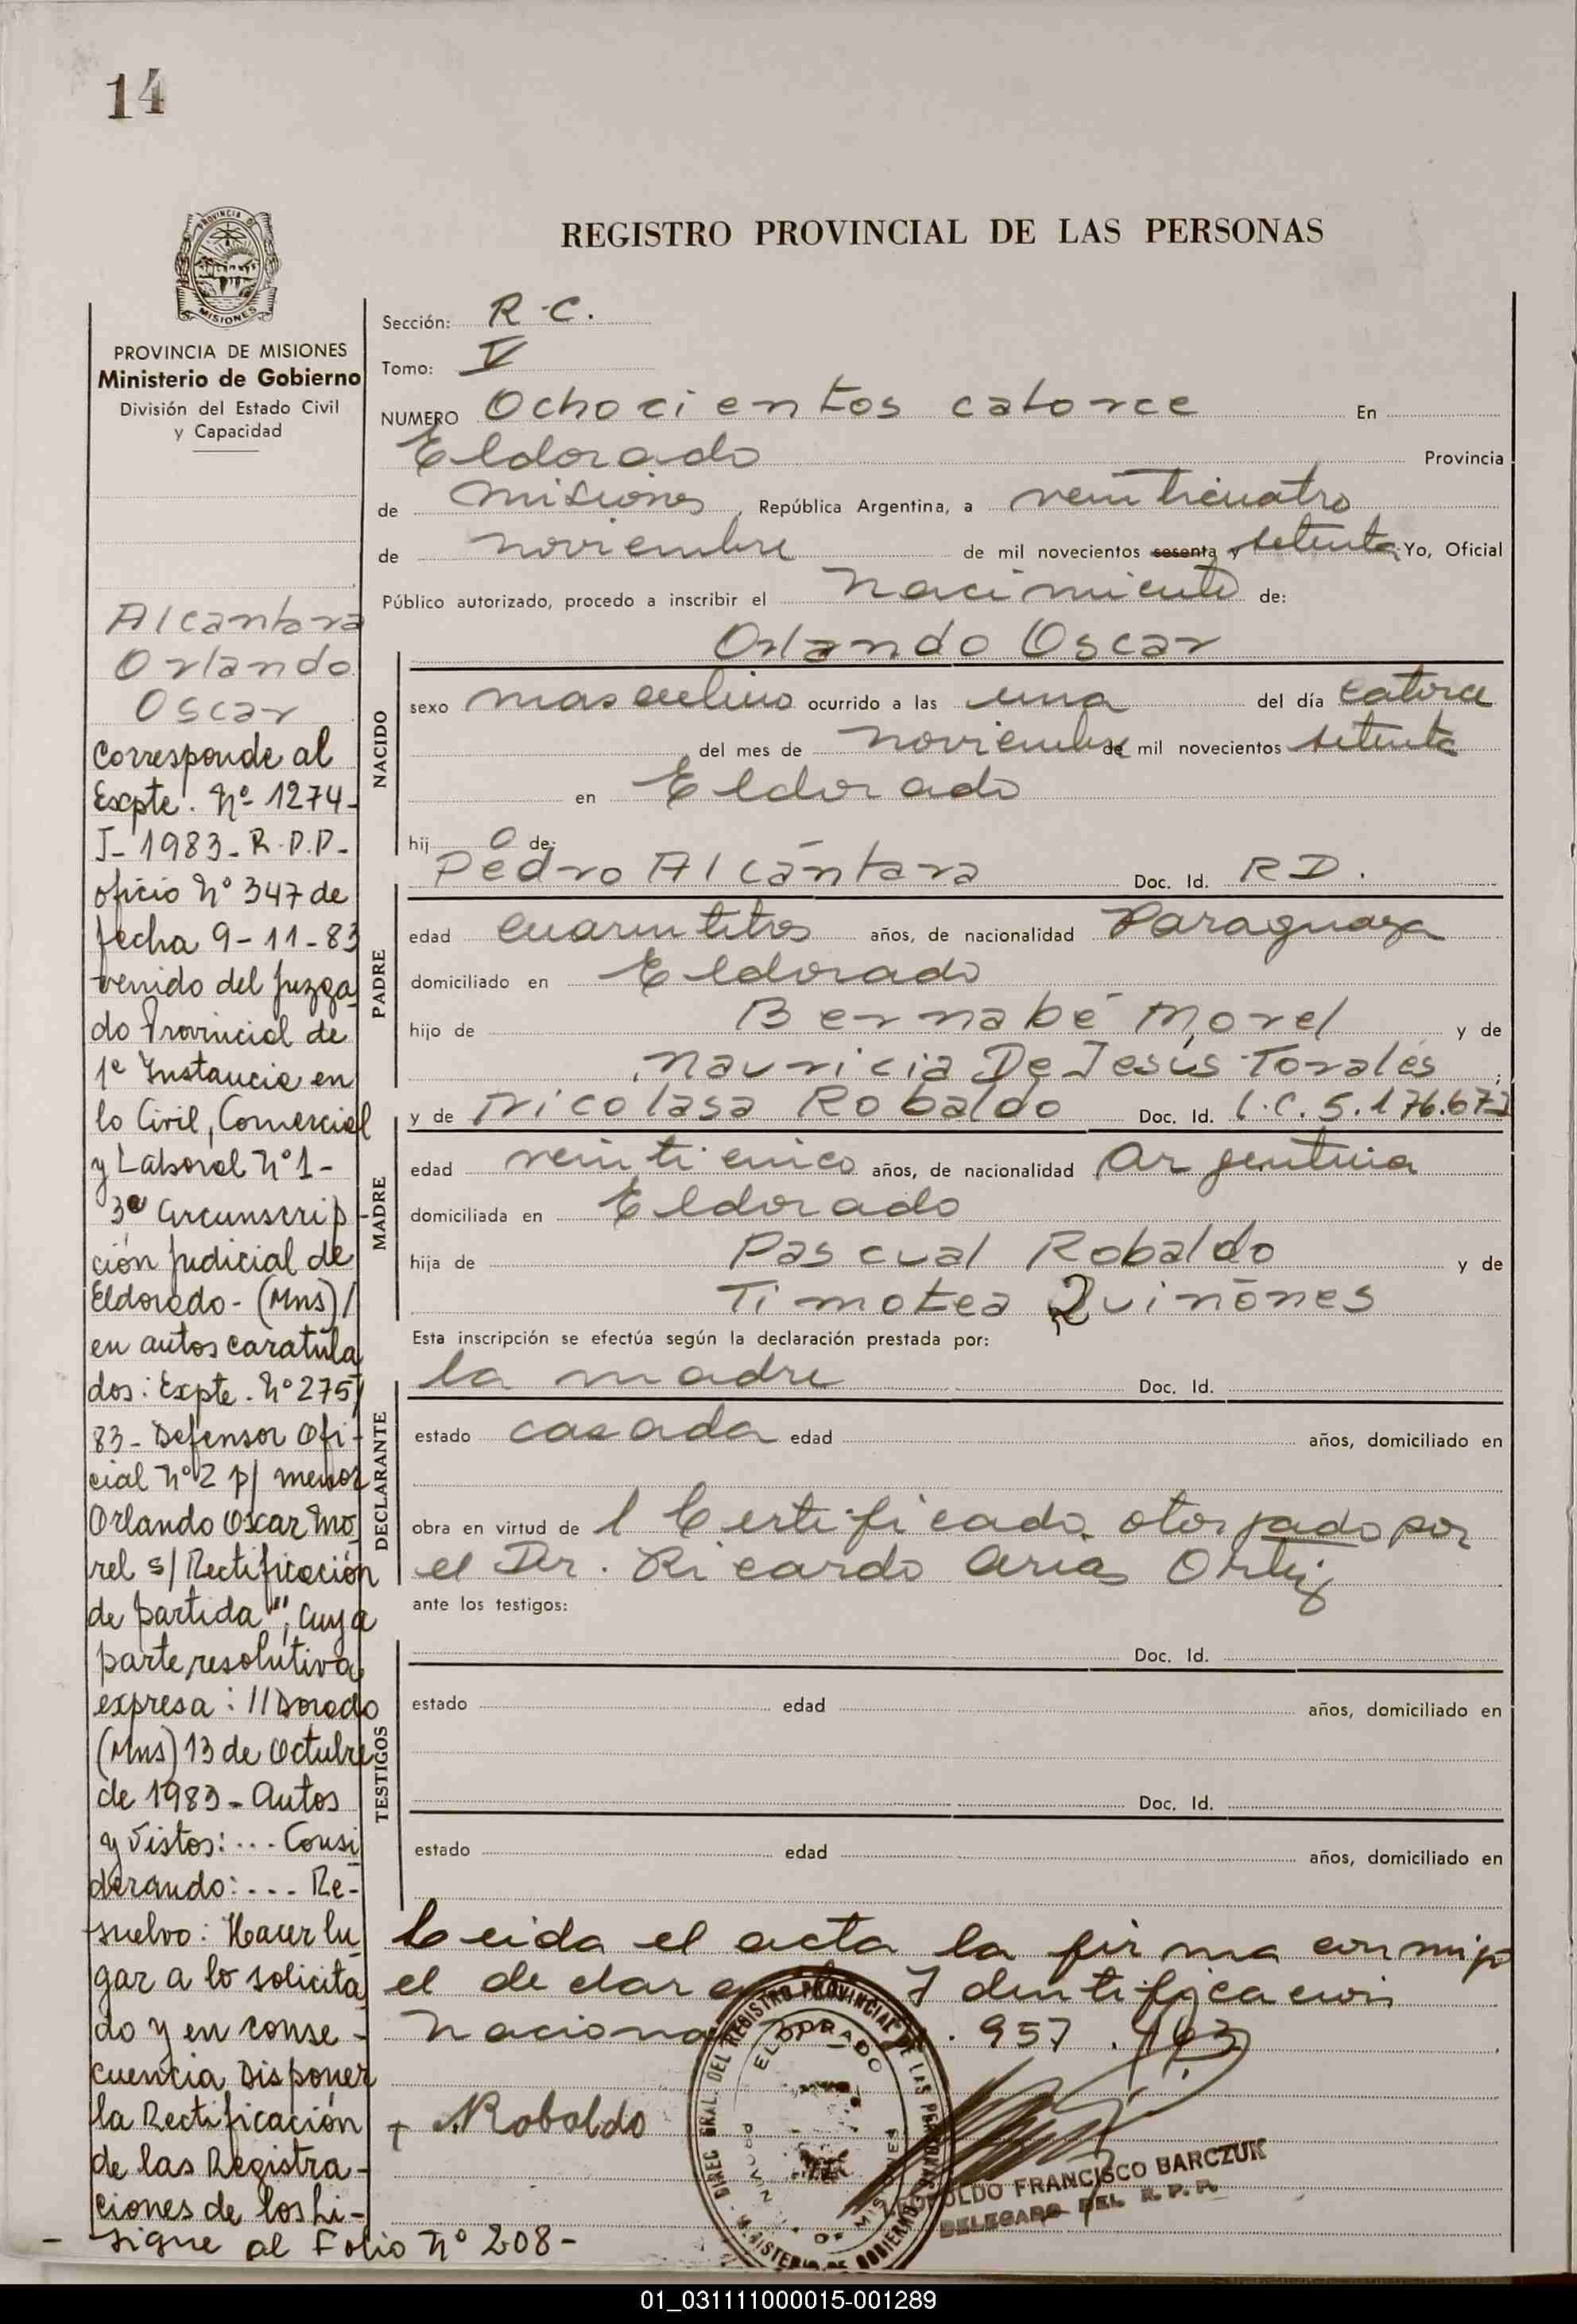 14
PROVINCIA DE
MISIONES
PROVINCIA DE MISIONES
Ministerio de Gobierno
División del Estado Civil
y Capacidad
Alcantara
Orlando
Oscar
Corresponde al
Expte. Nº 1274-
J-1983-R.P.P-
oficio Nº 347 de
fecha 9-11-83
venido del Juzga
do Provincial de
1ª Instancia en
lo Civil, Comercial
y Laboral Nº1-
3ª Circunscrip-
ción Judicial de
Eldorado-(Mns)/
en autos caratula
dos: Expte. Nº 275/
83-Defensor Ofi-
cial Nº2 p/ menor
Orlando Oscar Mo
rel s/ Rectificación
de partida", cuya
parte resolutiva
expresa: //Dorado
(Mns) 13 de Octubre
de 1983-Autos
y Vistos:... Consi
derando:... Re-
suelvo: Hacer lu
gar a lo solicita
do y en conse-
cuencia Disponer
la Rectificación
de las Registra-
ciones de los Li-
- sigue al Folio Nº 208-
REGISTRO PROVINCIAL DE LAS PERSONAS
Sección: R.C.
Tomo: V
NUMERO Ochocientos catorce En
Eldorado Provincia
de Misiones, República Argentina, a veinticuatro
de noviembre de mil novecientos sesenta y setenta Yo, Oficial
Público autorizado, procedo a inscribir el nacimiento de:
Orlando Oscar
NACIDO
sexo masculino ocurrido a las una del día catorce
del mes de noviembre de mil novecientos setenta
en Eldorado
hij o de:
Pedro Alcántara Doc. Id. RD.
PADRE
edad cuarentitres años, de nacionalidad Paraguaya
domiciliado en Eldorado
hijo de Bernabé Morel y de
Mauricia De Jesús Torales;
y de Nicolasa Robaldo Doc. Id. L.C. 5.176.673
MADRE
edad veinticinco años, de nacionalidad Argentina
domiciliada en Eldorado
hija de Pascual Robaldo y de
Timotea Quiñones
Esta inscripción se efectúa según la declaración prestada por:
la madre Doc. Id.
DECLARANTE
estado casada edad años, domiciliado en
obra en virtud de l Certificado otorgado por
el Dr. Ricardo Arias Ortiz
ante los testigos:
Doc. Id.
TESTIGOS
estado edad años, domiciliado en
Doc. Id.
estado edad años, domiciliado en
Leida el acta la firma conmigo
el declarante Identificacion
Nacional .957.
+ N.Robaldo
DIREC. GRAL. DEL REGISTRO PROVINCIAL DE LAS PERSONAS
MINISTERIO DE GOBIERNO
ELDORADO
DE MISIONES
LEOPOLDO FRANCISCO BARCZUK
DELEGADO DEL R.P.P.
01_031111000015-001289